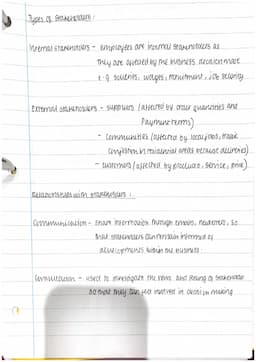 Types of Stakeholders:
Internal stakeholders - employees are internal stakeholders as
they are affected by the business decision made
e.g salaries, wages, recruitment, job security
External stakeholders - suppliers (affected by order quantities and
payment terms)
- communities (affected by locations, traffic
congestion in residential areas because deliveries)
- customers (affected by products, service, price)
Relationships with stakeholders:
Communication - share information through emails, newsletters, so
that stakeholders can remain informed of
developments within the business
Consultation - used to investigate the views and feeling of stakeholder
so that they can get involved in decision making